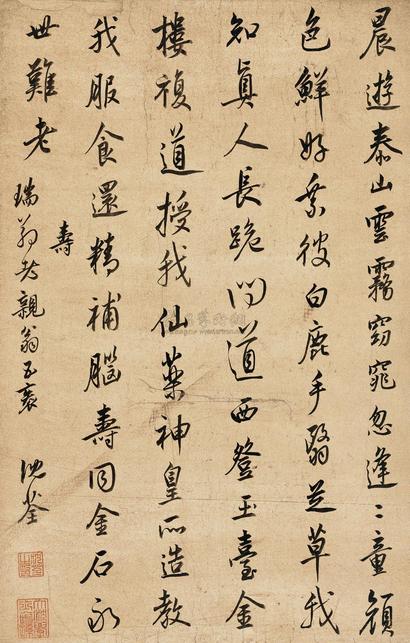 晨遊泰山雲霧窈窕忽逢二童顔
色鮮好乘彼白鹿手翳芝草我
知真人長跪問道西登玉臺金
樓複道授我仙藥神皇所造教
我服食還精補腦壽同金石永
世難老
壽
瑞翁老親翁五袠
沈荃